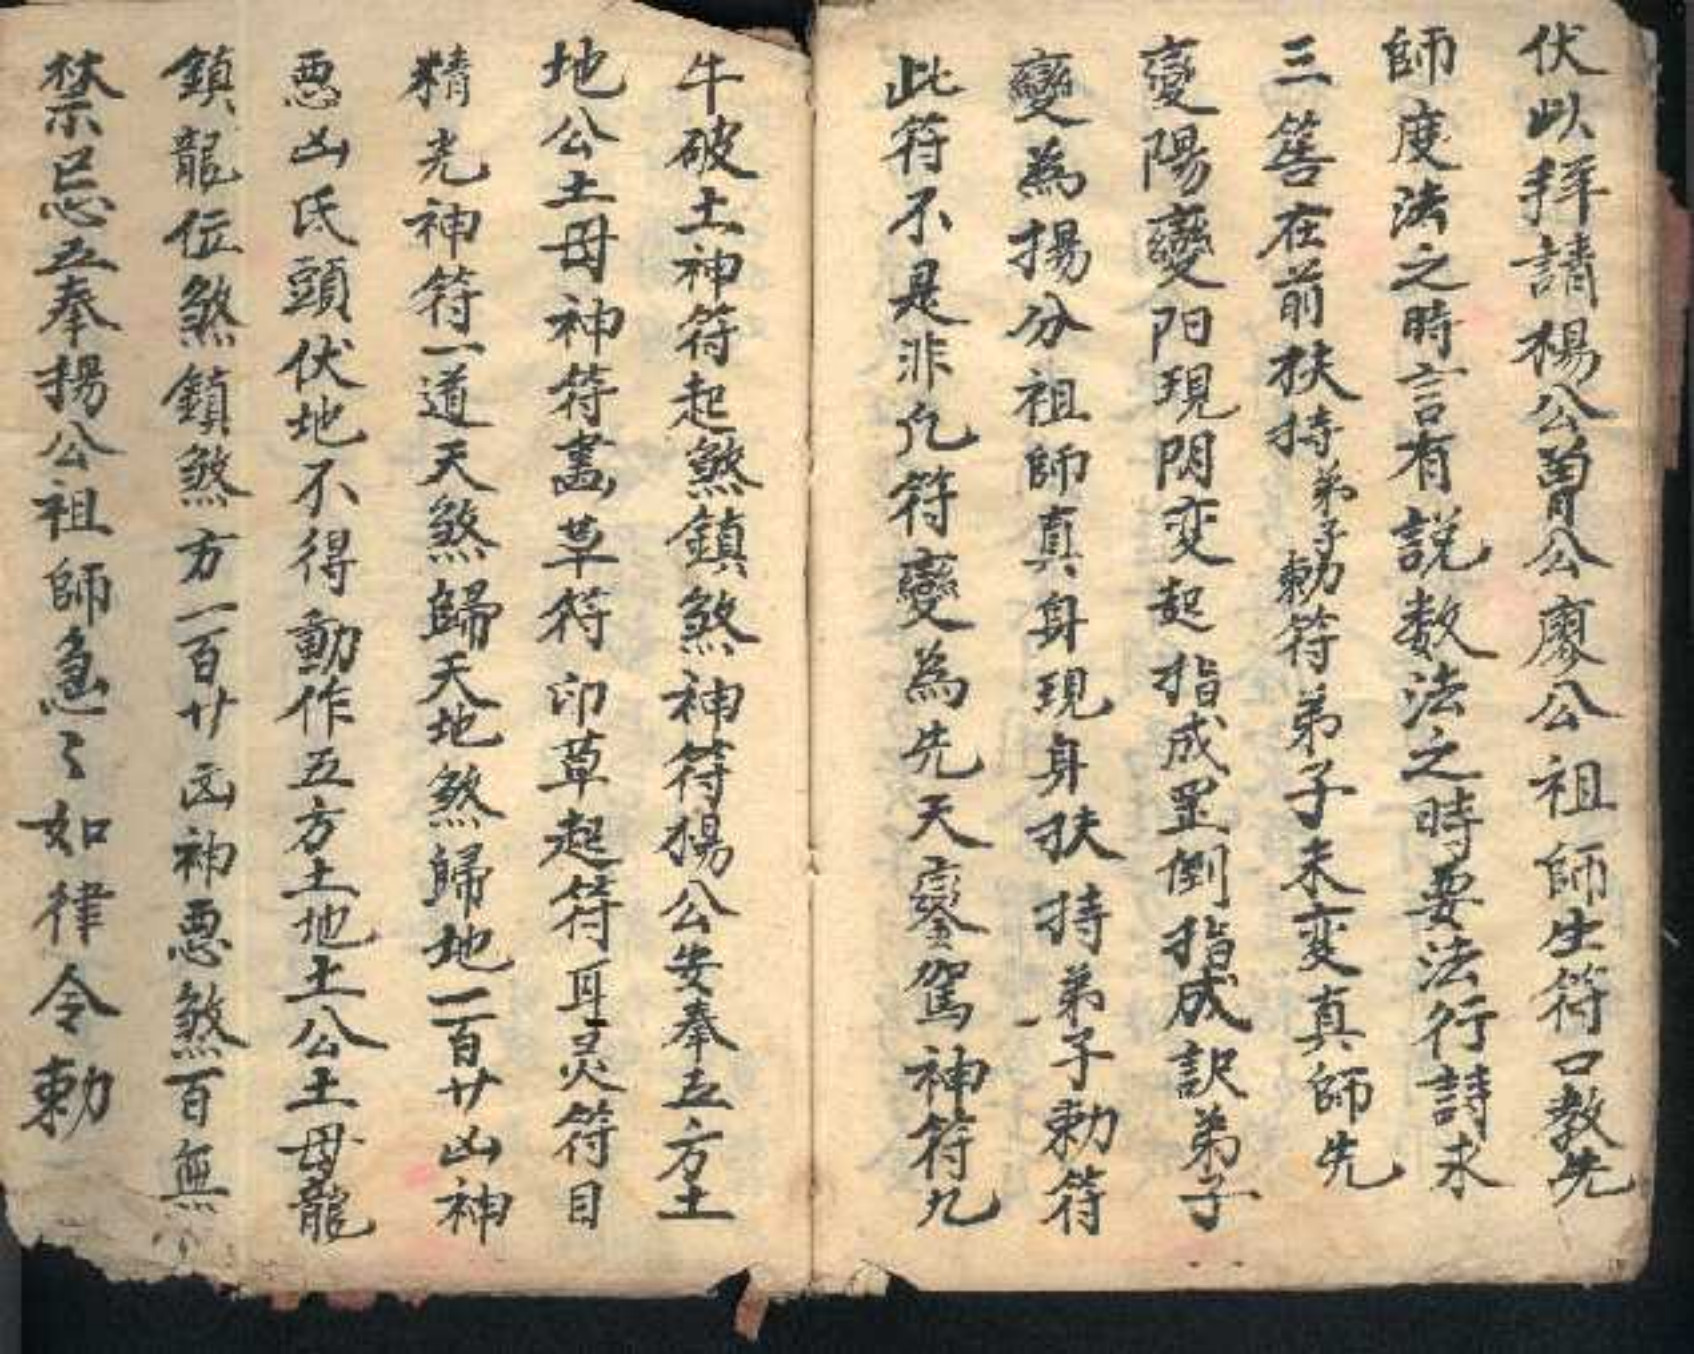 伏以拜請楊公曾公廖公祖師生符口教先
師度法之時言有説数法之時要法行詩求
三筶在前扶持弟子勅符弟子未变真師先
變陽變阳現閃变起指成罡倒指成訳弟子
變為揚分祖師真身現身扶持弟子勅符
此符不是非凡符變為先天鑾駕神符九
牛破土神符起煞鎮煞神符楊公安奉五方土
地公土母神符畵草符印草起符耳灵符目
精光神符一道天煞歸天地煞歸地一百廿凶神
悪凶氏頭伏地不得動作五方土地土公土母龍
鎮龍位煞鎮煞方一百廿凶神悪煞百無
禁忌五奉揚公祖師急々如律令勅